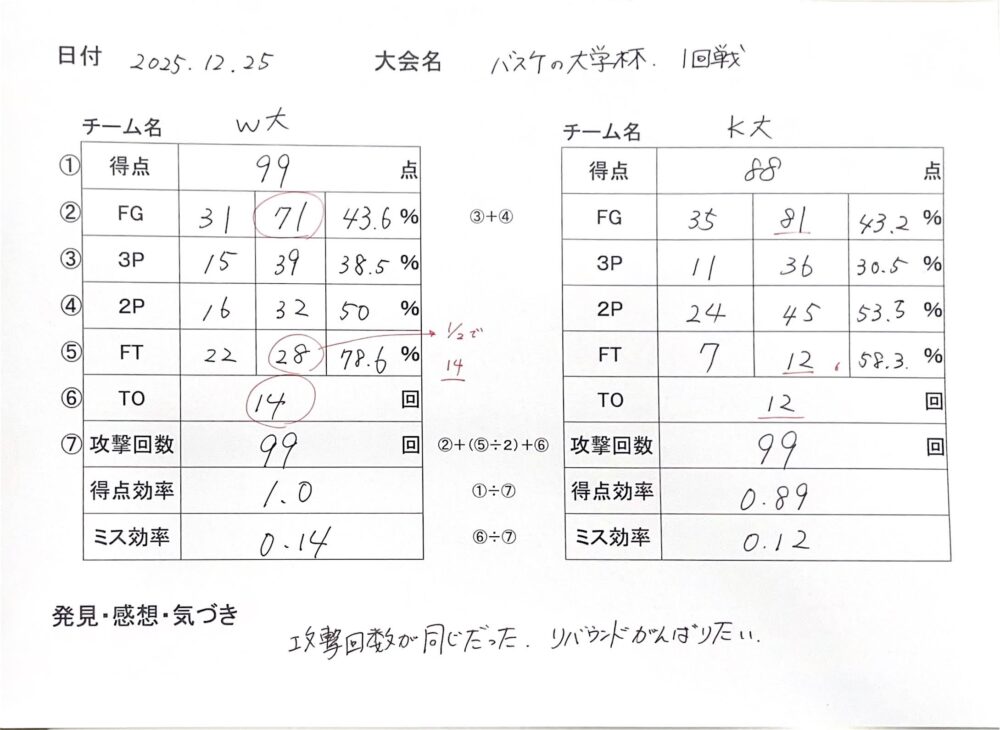 日付 2025.12.25 大会名 バスケの大学杯. 1回戦
チーム名 W大 チーム名 K大
① 得点 99 点 得点 88 点
② FG 31 71 43.6 % ③+④ FG 35 81 43.2 %
③ 3P 15 39 38.5 % 3P 11 36 30.5 %
④ 2P 16 32 50 % 2P 24 45 53.3 %
⑤ FT 22 28 78.6 % 1/2で FT 7 12 58.3. %
14
⑥ TO 14 回 TO 12 回
⑦ 攻撃回数 99 回 ②+(⑤÷2)+⑥ 攻撃回数 99 回
得点効率 1.0 ①÷⑦ 得点効率 0.89
ミス効率 0.14 ⑥÷⑦ ミス効率 0.12
発見・感想・気づき
攻撃回数が同じだった. リバウンドがんばりたい.